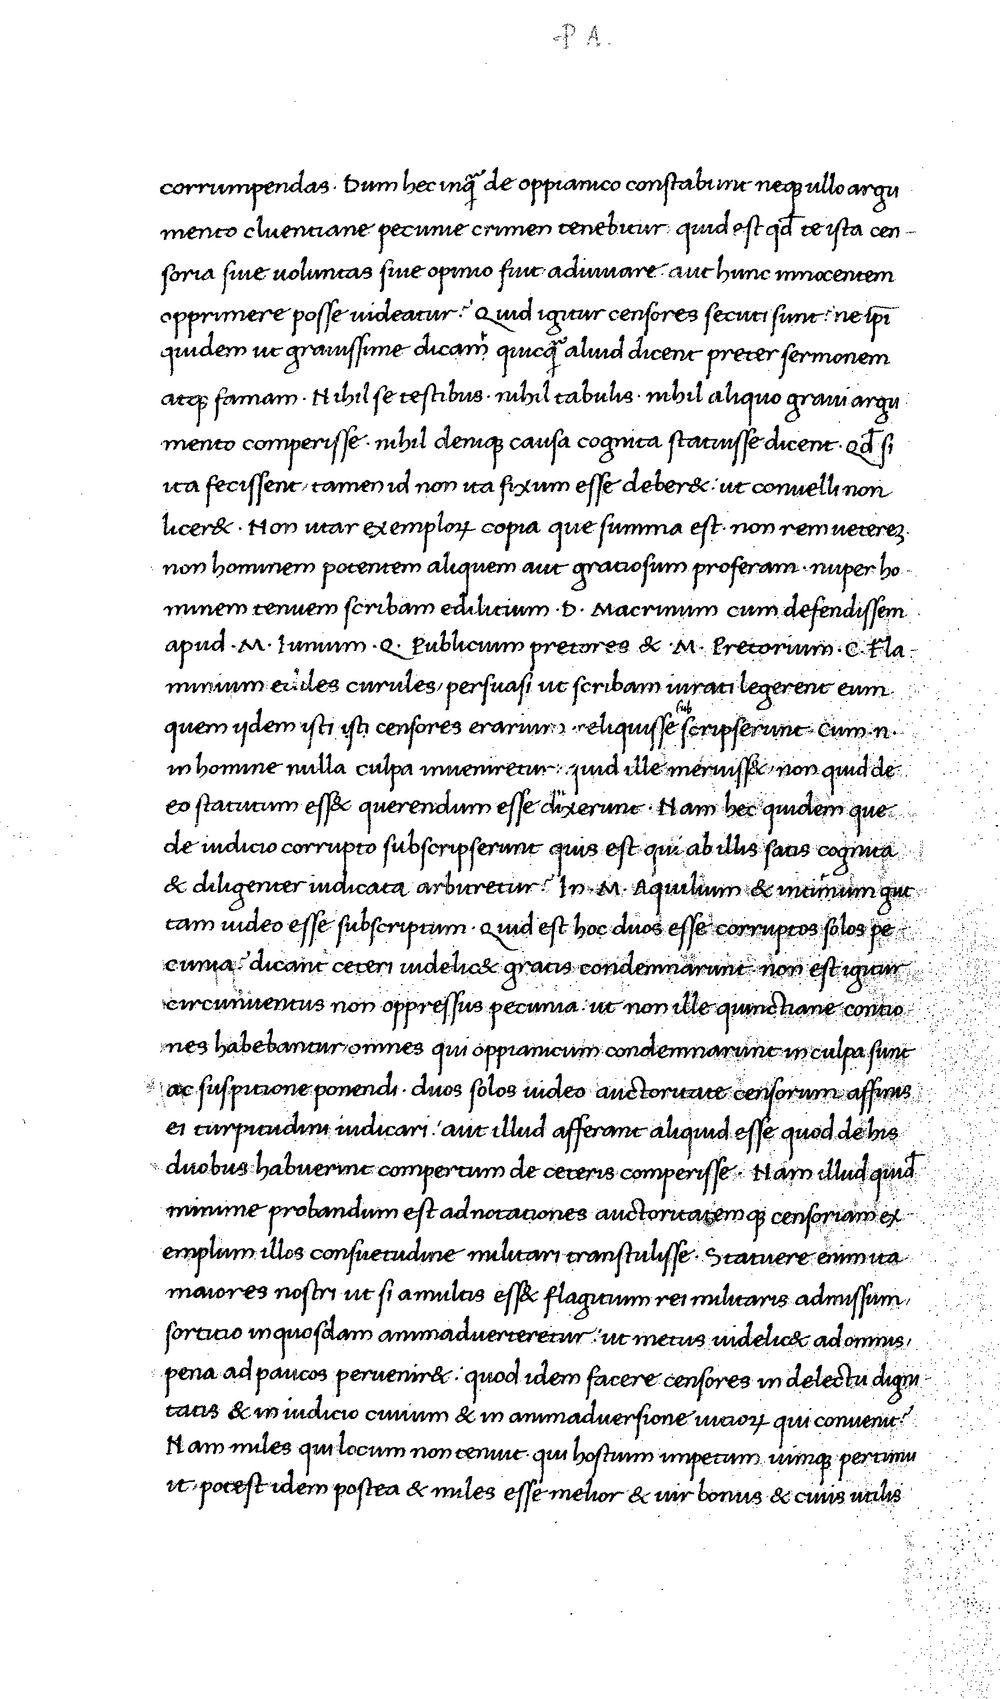 P A.
corrumpendas. Dum hec inqᷓ de oppianico constabunt neqꝫ ullo argu
mento cluentiane pecunie crimen tenebitur: quid est qd̄ te ista cen-
soria siue uoluntas siue opinio fuit adiuuare: aut hunc innocentem
opprimere posse uideatur? Quid igitur censores secuti sunt? ne ip̄i
quidem ut grauissime dicam quicqᷓ aliud dicent preter sermonem
atqꝫ famam. Nihil se testibus. nihil tabulis. nihil aliquo graui argu
mento comperisse. nihil deniqꝫ causa cognita statuisse dicent. Qd̄ si
ita fecissent, tamen id non ita fixum esse deber&: ut conuelli non
licer&. Non utar exemploꝝ copia que summa est. non rem ueterēꝫ.
non hominem potentem aliquem aut gratiosum proferam. nuper ho
minem tenuem scribam edilitium. D. Macrinum cum defendissem
apud. M. Iunium. Q. Publicium pretores & M. Pretorium. C. Fla-
minium ediles curules, persuasi ut scribam iurati legerent eum
quem ijdem isti isti censores erarium reliquisse subscripserunt. Cum. n.
in homine nulla culpa inueniretur: quid ille meruiss&, non quid de
eo statutum ess& querendum esse dixerunt. Nam hec quidem que
de iudicio corrupto subscripserunt quis est qui ab illis satis cognita
& diligenter iudicata arbitretur? In. M. Aquilium & intimum gut
tam uideo esse subscriptum. Quid est hoc duos esse corruptos solos pe
cunia? dicant ceteri uidelic& gratis condemnarunt. non est igitur
circumuentus non oppressus pecunia. ut non ille quinctiane contio
nes habebantur, omnes qui oppianicum condemnarunt in culpa sunt
ac suspitione ponendi. duos solos uideo auctoritate censorum affinis
ei turpitudini iudicari: aut illud afferant aliquid esse quod de his
duobus habuerint compertum de ceteris comperisse. Nam illud quid̄
minime probandum est ad notationes auctoritatemqꝫ censoriam ex
emplum illos consuetudine militari transtulisse. Statuere enim ita
maiores nostri ut si a multis ess& flagitium rei militaris admissum,
sortitio in quosdam animaduerteretur: ut metus uidelic& ad omnis,
pena ad paucos peruenir&: quod idem facere censores in delectu digni-
tatis & in iudicio ciuium & in animaduersione uitioꝝ qui conuenit?
Nam miles qui locum non tenuit. qui hostium impetum uimqꝫ pertimu
it, potest idem postea & miles esse melior & uir bonus & ciuis utilis